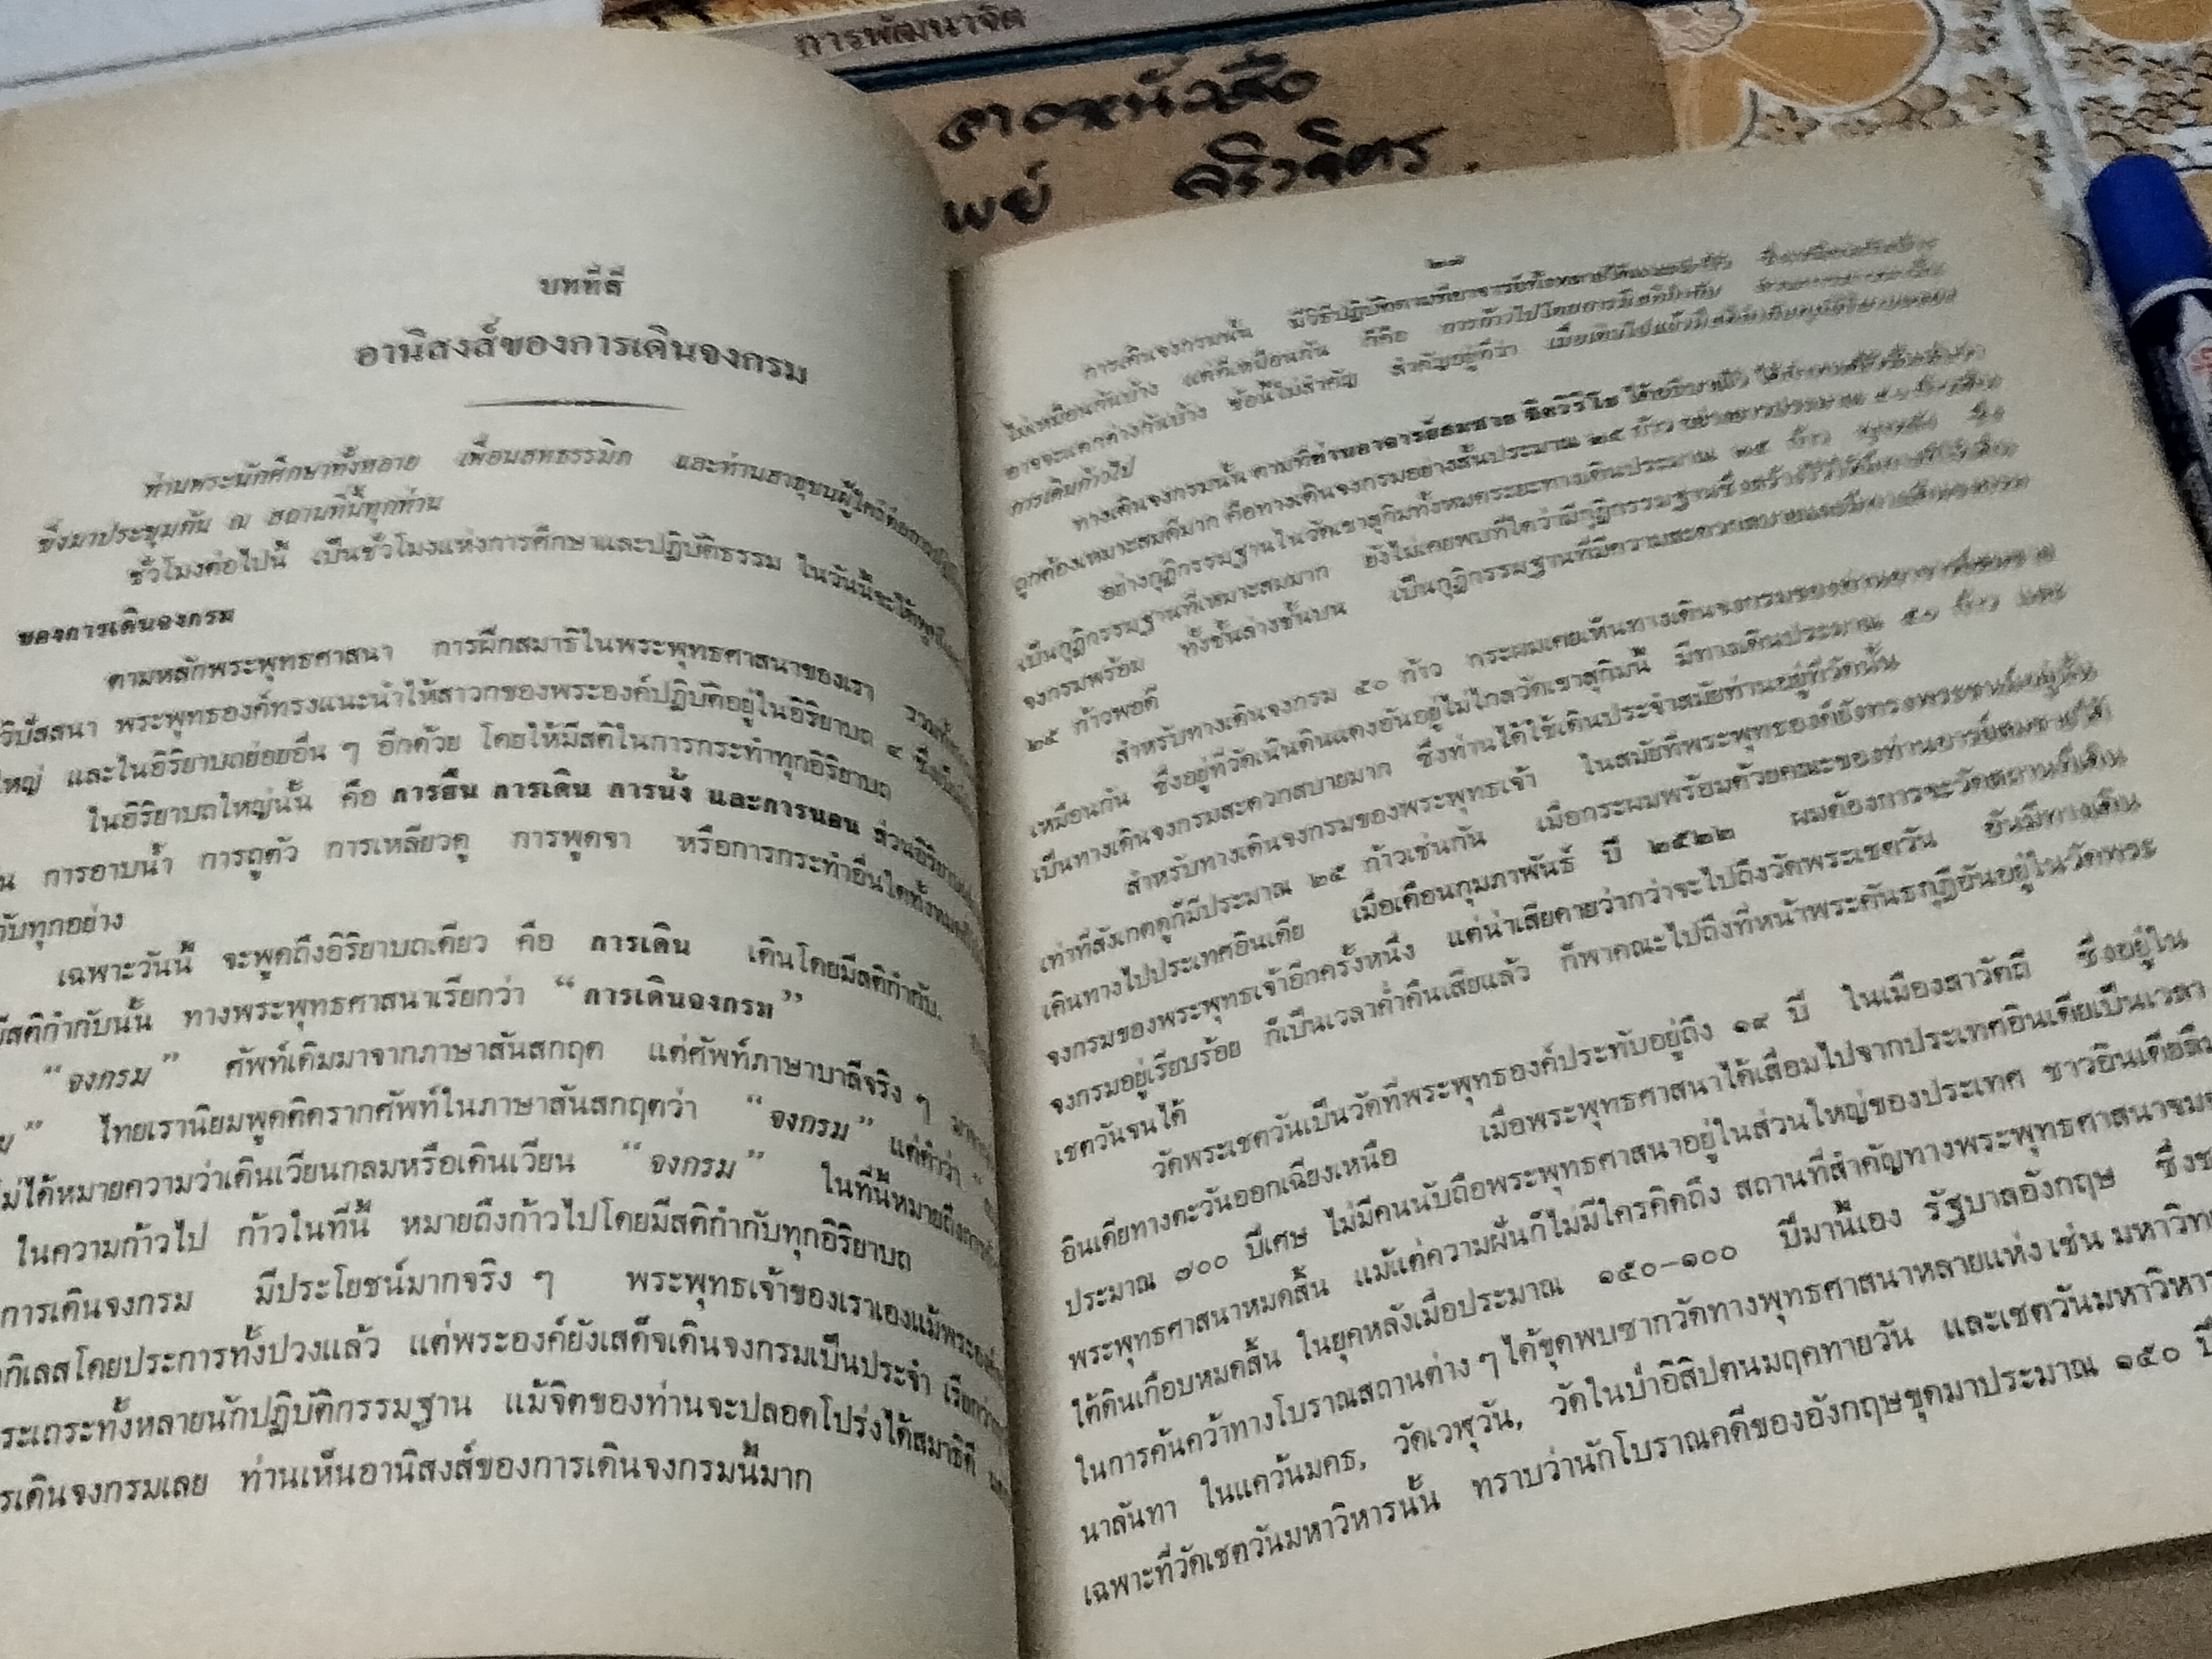 การพัฒนาจิต
พย์ ศริวจิตร.
บทที่สี่
อานิสงส์ของการเดินจงกรม
ท่านพระนักศึกษาทั้งหลาย เพื่อนสหธรรมิก และท่านสาธุชนผู้ใคร่
ซึ่งมาประชุมกัน ณ สถานที่นี้ทุกท่าน
ชั่วโมงต่อไปนี้ เป็นชั่วโมงแห่งการศึกษาและปฏิบัติธรรม ในวันนี้จะได้
ของการเดินจงกรม
ตามหลักพระพุทธศาสนา การฝึกสมาธิในพระพุทธศาสนาของเรา
วิปัสสนา พระพุทธองค์ทรงแนะนำให้สาวกของพระองค์ปฏิบัติอยู่ในอิริยาบถ ๔ ซึ่ง
ใหญ่ และในอิริยาบถย่อยอื่น ๆ อีกด้วย โดยให้มีสติในการกระทำทุกอิริยาบถ
ในอิริยาบถใหญ่นั้น คือ การยืน การเดิน การนั่ง และการนอน ส่วน
น การอาบน้ำ การถูตัว การเหลียวดู การพูดจา หรือการกระทำอื่นใดทั้งหมด
กับทุกอย่าง
เฉพาะวันนี้ จะพูดถึงอิริยาบถเดียว คือ การเดิน เดินโดยมีสติกำกับ
มีสติกำกับนั้น ทางพระพุทธศาสนาเรียกว่า “การเดินจงกรม”
“จงกรม” ศัพท์เดิมมาจากภาษาสันสกฤต แต่ศัพท์ภาษาบาลีจริง ๆ
ย” ไทยเรานิยมพูดติดรากศัพท์ในภาษาสันสกฤตว่า “จงกรม” แต่คำว่า
ไม่ได้หมายความว่าเดินเวียนกลมหรือเดินเวียน “จงกรม” ในที่นี้หมายถึง
ในความก้าวไป ก้าวในที่นี้ หมายถึงก้าวไปโดยมีสติกำกับทุกอิริยาบถ
การเดินจงกรม มีประโยชน์มากจริง ๆ พระพุทธเจ้าของเราเองแม้
กิเลสโดยประการทั้งปวงแล้ว แต่พระองค์ยังเสด็จเดินจงกรมเป็นประจำ
ระเถระทั้งหลายนักปฏิบัติกรรมฐาน แม้จิตของท่านจะปลอดโปร่งได้สมาธิดี
รเดินจงกรมเลย ท่านเห็นอานิสงส์ของการเดินจงกรมนี้มาก
การเดินจงกรมนั้น มีวิธีปฏิบัติตามที่อาจารย์ทั้งหลาย
ไม่เหมือนกันบ้าง แต่ที่เหมือนกัน ก็คือ การก้าวไปโดยการมีสติ
อาจจะแตกต่างกันบ้าง ข้อนี้ไม่สำคัญ สำคัญอยู่ที่ว่า เมื่อเดินไปแล้ว
การเดินก้าวไป
ทางเดินจงกรมนั้น ตามที่ท่านอาจารย์สมชาย ฐิตวิริโย ได้
ถูกต้องเหมาะสมดีมาก คือทางเดินจงกรมอย่างสั้นประมาณ ๒๕ ก้าว อย่างยาวประมาณ ๕๐
อย่างกุฏิกรรมฐานในวัดเขาสุกิมทั้งหมดระยะทางเดินประมาณ ๒๕ ก้าว
เป็นกุฏิกรรมฐานที่เหมาะสมมาก ยังไม่เคยพบที่ใดว่ามีกุฏิกรรมฐานซึ่งสร้างไว้
จงกรมพร้อม ทั้งชั้นล่างชั้นบน เป็นกุฏิกรรมฐานที่มีความสะดวกสบาย
๒๕ ก้าวพอดี
สำหรับทางเดินจงกรม ๕๐ ก้าว กระผมเคยเห็นทางเดินจงกรมของท่าน
เหมือนกัน ซึ่งอยู่ที่วัดเนินดินแดงอันอยู่ไม่ไกลวัดเขาสุกิมนี้ มีทางเดินประมาณ ๕๐ ก้าว
เป็นทางเดินจงกรมสะดวกสบายมาก ซึ่งท่านได้ใช้เดินประจำสมัยท่านอยู่ที่วัดนั้น
สำหรับทางเดินจงกรมของพระพุทธเจ้า ในสมัยที่พระพุทธองค์ยังทรงพระชนม์อยู่นั้น
เท่าที่สังเกตดูก็มีประมาณ ๒๕ ก้าวเช่นกัน เมื่อกระผมพร้อมด้วยคณะของท่านอาจารย์สมชายได้
เดินทางไปประเทศอินเดีย เมื่อเดือนกุมภาพันธ์ ปี ๒๕๒๒ ผมต้องการจะวัดสถานที่เดิน
จงกรมของพระพุทธเจ้าอีกครั้งหนึ่ง แต่น่าเสียดายว่ากว่าจะไปถึงวัดพระเชตวัน อันมีทางเดิน
จงกรมอยู่เรียบร้อย ก็เป็นเวลาค่ำคืนเสียแล้ว ก็พาคณะไปถึงที่หน้าพระคันธกุฏีอันอยู่ในวัดพระ
เชตวันจนได้
วัดพระเชตวันเป็นวัดที่พระพุทธองค์ประทับอยู่ถึง ๑๙ ปี ในเมืองสาวัตถี ซึ่งอยู่ใน
อินเดียทางตะวันออกเฉียงเหนือ เมื่อพระพุทธศาสนาได้เสื่อมไปจากประเทศอินเดียเป็นเวลา
ประมาณ ๗๐๐ ปีเศษ ไม่มีคนนับถือพระพุทธศาสนาอยู่ในส่วนใหญ่ของประเทศ ชาวอินเดียลืม
พระพุทธศาสนาหมดสิ้น แม้แต่ความฝันก็ไม่มีใครคิดถึง สถานที่สำคัญทางพระพุทธศาสนาจม
ใต้ดินเกือบหมดสิ้น ในยุคหลังเมื่อประมาณ ๑๕๐–๑๐๐ ปีมานี้เอง รัฐบาลอังกฤษ ซึ่ง
ในการค้นคว้าทางโบราณสถานต่าง ๆ ได้ขุดพบซากวัดทางพุทธศาสนาหลายแห่ง เช่น มหาวิท
นาลันทา ในแคว้นมคธ, วัดเวฬุวัน, วัดในป่าอิสิปตนมฤคทายวัน และเชตวันมหาวิหาร
เฉพาะที่วัดเชตวันมหาวิหารนั้น ทราบว่านักโบราณคดีของอังกฤษขุดมาประมาณ ๑๕๐ ปี